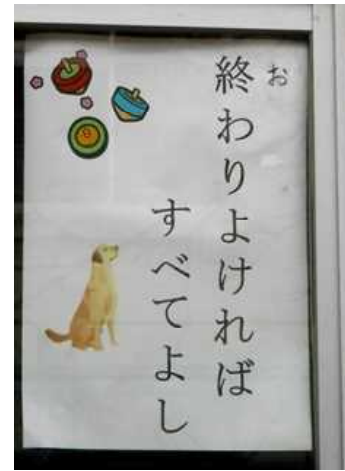 終わりよければ
お
すべてよし